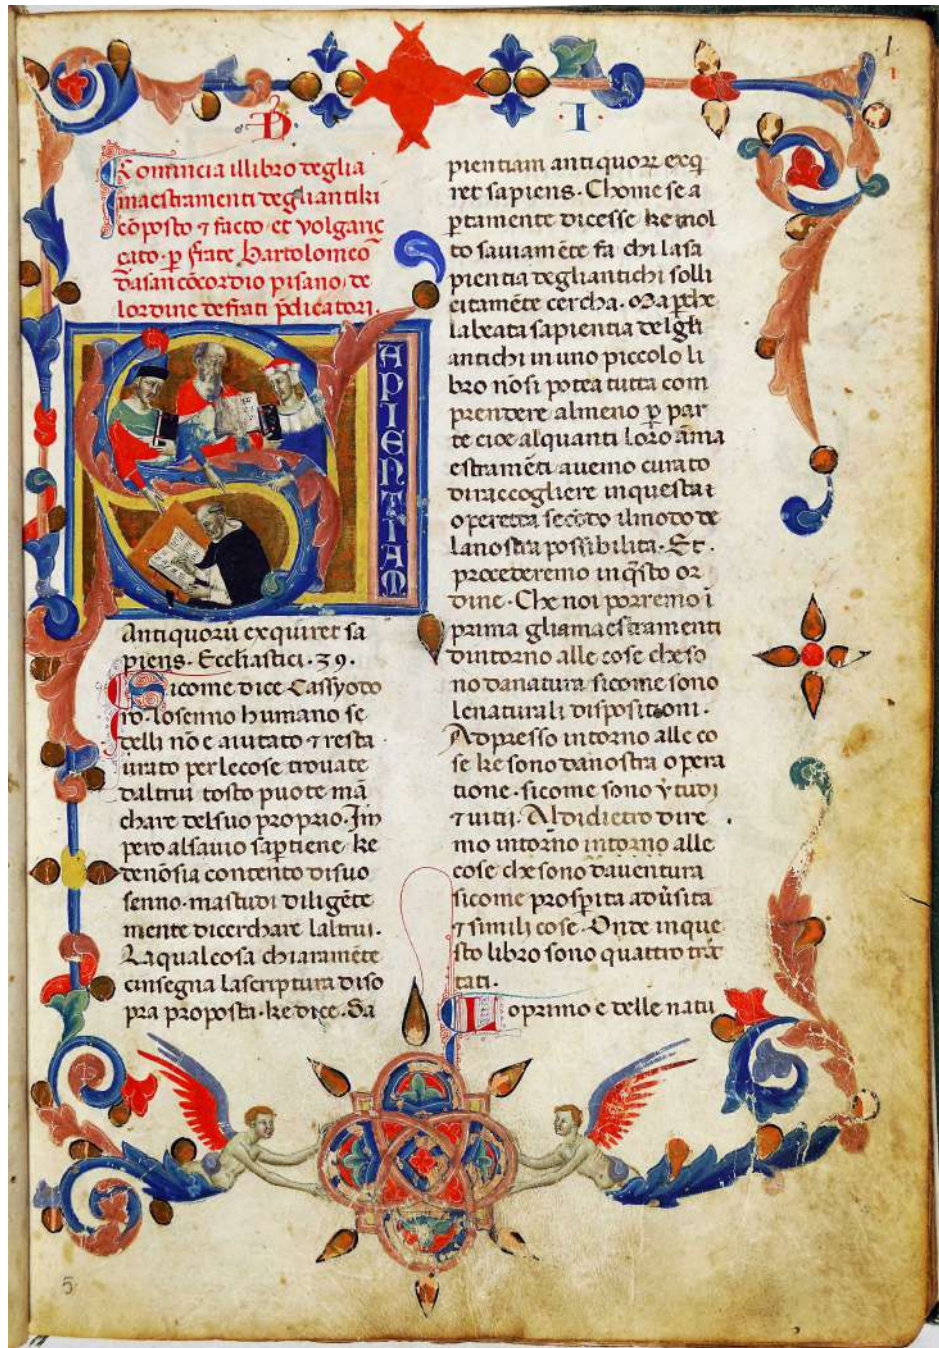 1
1
D. I.
Comincia illibro deglia
maestramenti degliantiki
cōposto ⁊ facto et volgariç
çato· p̄ frate Bartolomeo
dasan cōcordio pisano, de
lordine defrati p̄dicatori.
SAPIENTIAM
Antiquorū exquiret sa
piens. Eccl̄iastici .39.
Sicome dice Cassyodo
ro. losenno humano se
delli nō e aiutato ⁊ resta
urato per lecose trouate
daltrui tosto puote mā
chare delsuo proprio. Im
pero alsauio sap̄tiene, ke
denōsia contento disuo
senno. mastudi diligēte
mente dicerchare laltrui.
Laqualcosa chiaramēte
cinsegna lascriptura diso
pra proposta. ke dice. Sa
pientiam antiquorꝝ exq̄
ret sapiens. Chome se a
ptamente dicesse ke mol
to sauiamēte fa chi lasa
pientia degliantichi solli
citamēte cercha. Ora p̄che
labeata sapientia delgli
antichi in uno piccolo li
bro nōsi potea tutta com
prendere almeno p̄ par
te cioe alquanti loro āma
estramēti auemo curato
diraccogliere inquesta
operetta secōdo ilmodo de
lanostra possibilita. Et.
procederemo inq̄sto or
dine. Che noi porremo ī
prima gliamaestramenti
dintorno alle cose cheso
no danatura. sicome sono
lenaturali dispositioni.
Adpresso intorno alle co
se ke sono danostra opera
tione. sicome sono v̓tudi
⁊ uitii. Aldidietro dire
mo intorno intorno alle
cose che sono dauentura
sicome prosp̄ita adūsita
⁊ simili cose. Onde inque
sto libro sono quattro trac
tati.
Loprimo e delle natu
5